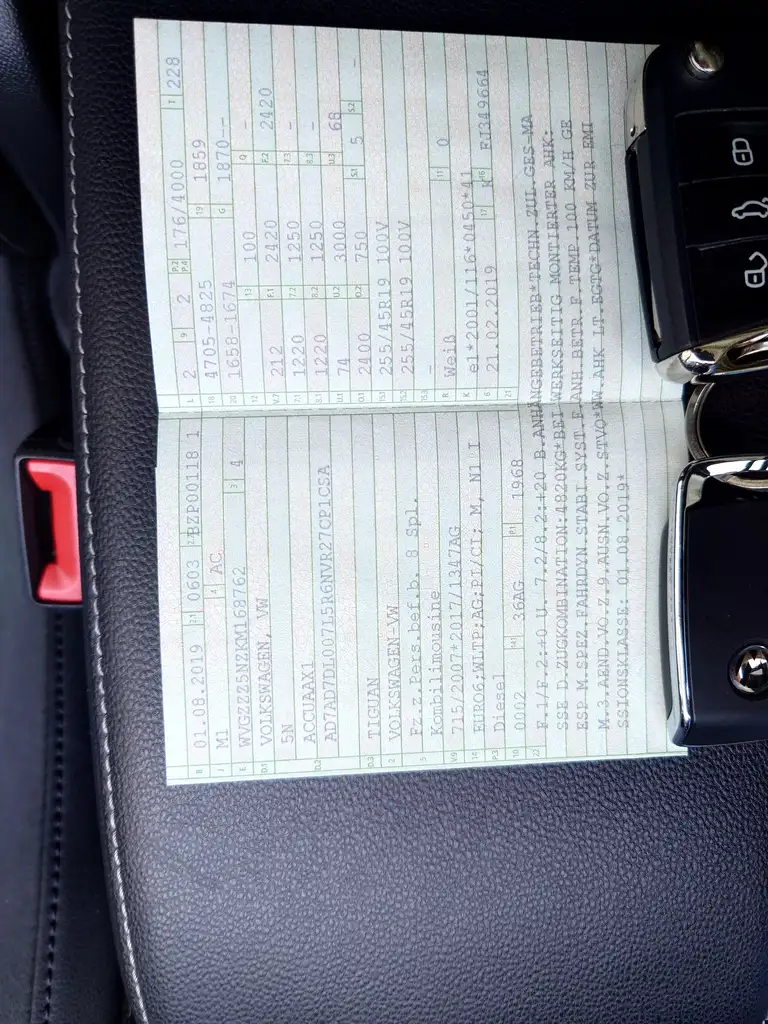 B 01.08.2019 2.1 0603 2.2 BZP00118 1
J M1 4 AC
E WVGZZZ5NZKM168762 3 4
D.1 VOLKSWAGEN, VW
5N
D.2 ACCUAAX1
AD7AD7DL007L5R6NVR27CP1CSA
D.3 TIGUAN
2 VOLKSWAGEN-VW
5 Fz.z.Pers.bef.b. 8 Spl.
Kombilimousine
V.9 715/2007*2017/1347AG
14 EURO6;WLTP;AG;PI/CI; M, N1 I
P.3 Diesel
10 0002 14.1 36AG P.1 1968
L 2 9 2 P.2 P.4 176/4000 T 228
18 4705-4825 19 1859
20 1658-1674 G 1870--
12 - 13 100 Q -
V.7 212 F.1 2420 F.2 2420
7.1 1220 7.2 1250 7.3 -
8.1 1220 8.2 1250 8.3 -
U.1 74 U.2 3000 U.3 68
O.1 2400 O.2 750 S.1 5 S.2 -
15.1 255/45R19 100V
15.2 255/45R19 100V
15.3 -
R Weiß 11 0
K e1*2001/116*0450*41
6 21.02.2019 17 K 16 FJ349664
21
22 F.1/F.2:+0 U. 7.2/8.2:+20 B.ANHÄNGEBETRIEB*TECHN.ZUL.GES-MA
SSE D.ZUGKOMBINATION:4820KG*BEI WERKSEITIG MONTIERTER AHK:
ESP M.SPEZ.FAHRDYN.STABI.SYST.F.ANH.BETR.F.TEMP.100 KM/H GE
M.3.AEND.VO.Z.9.AUSN.VO.Z.STVO*WW.AHK LT.EGTG*DATUM ZUR EMI
SSIONSKLASSE: 01.08.2019*